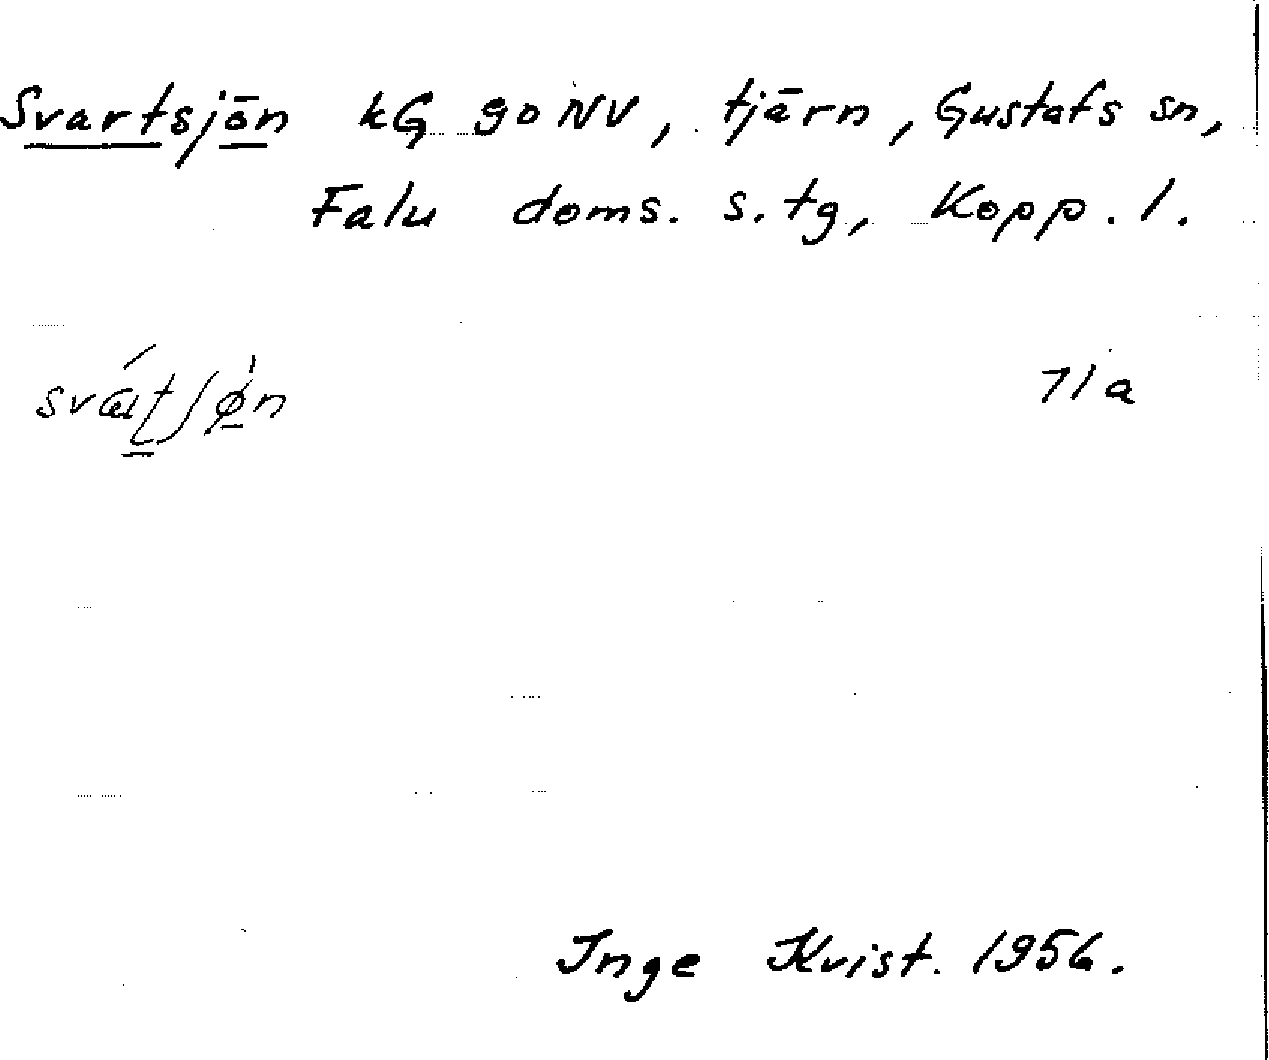 Svartsjön kG 90 NV, tjärn, Gustafs sn,
Falu doms. s. tg, Kopp. l.
71a
Inge Kvist. 1956.